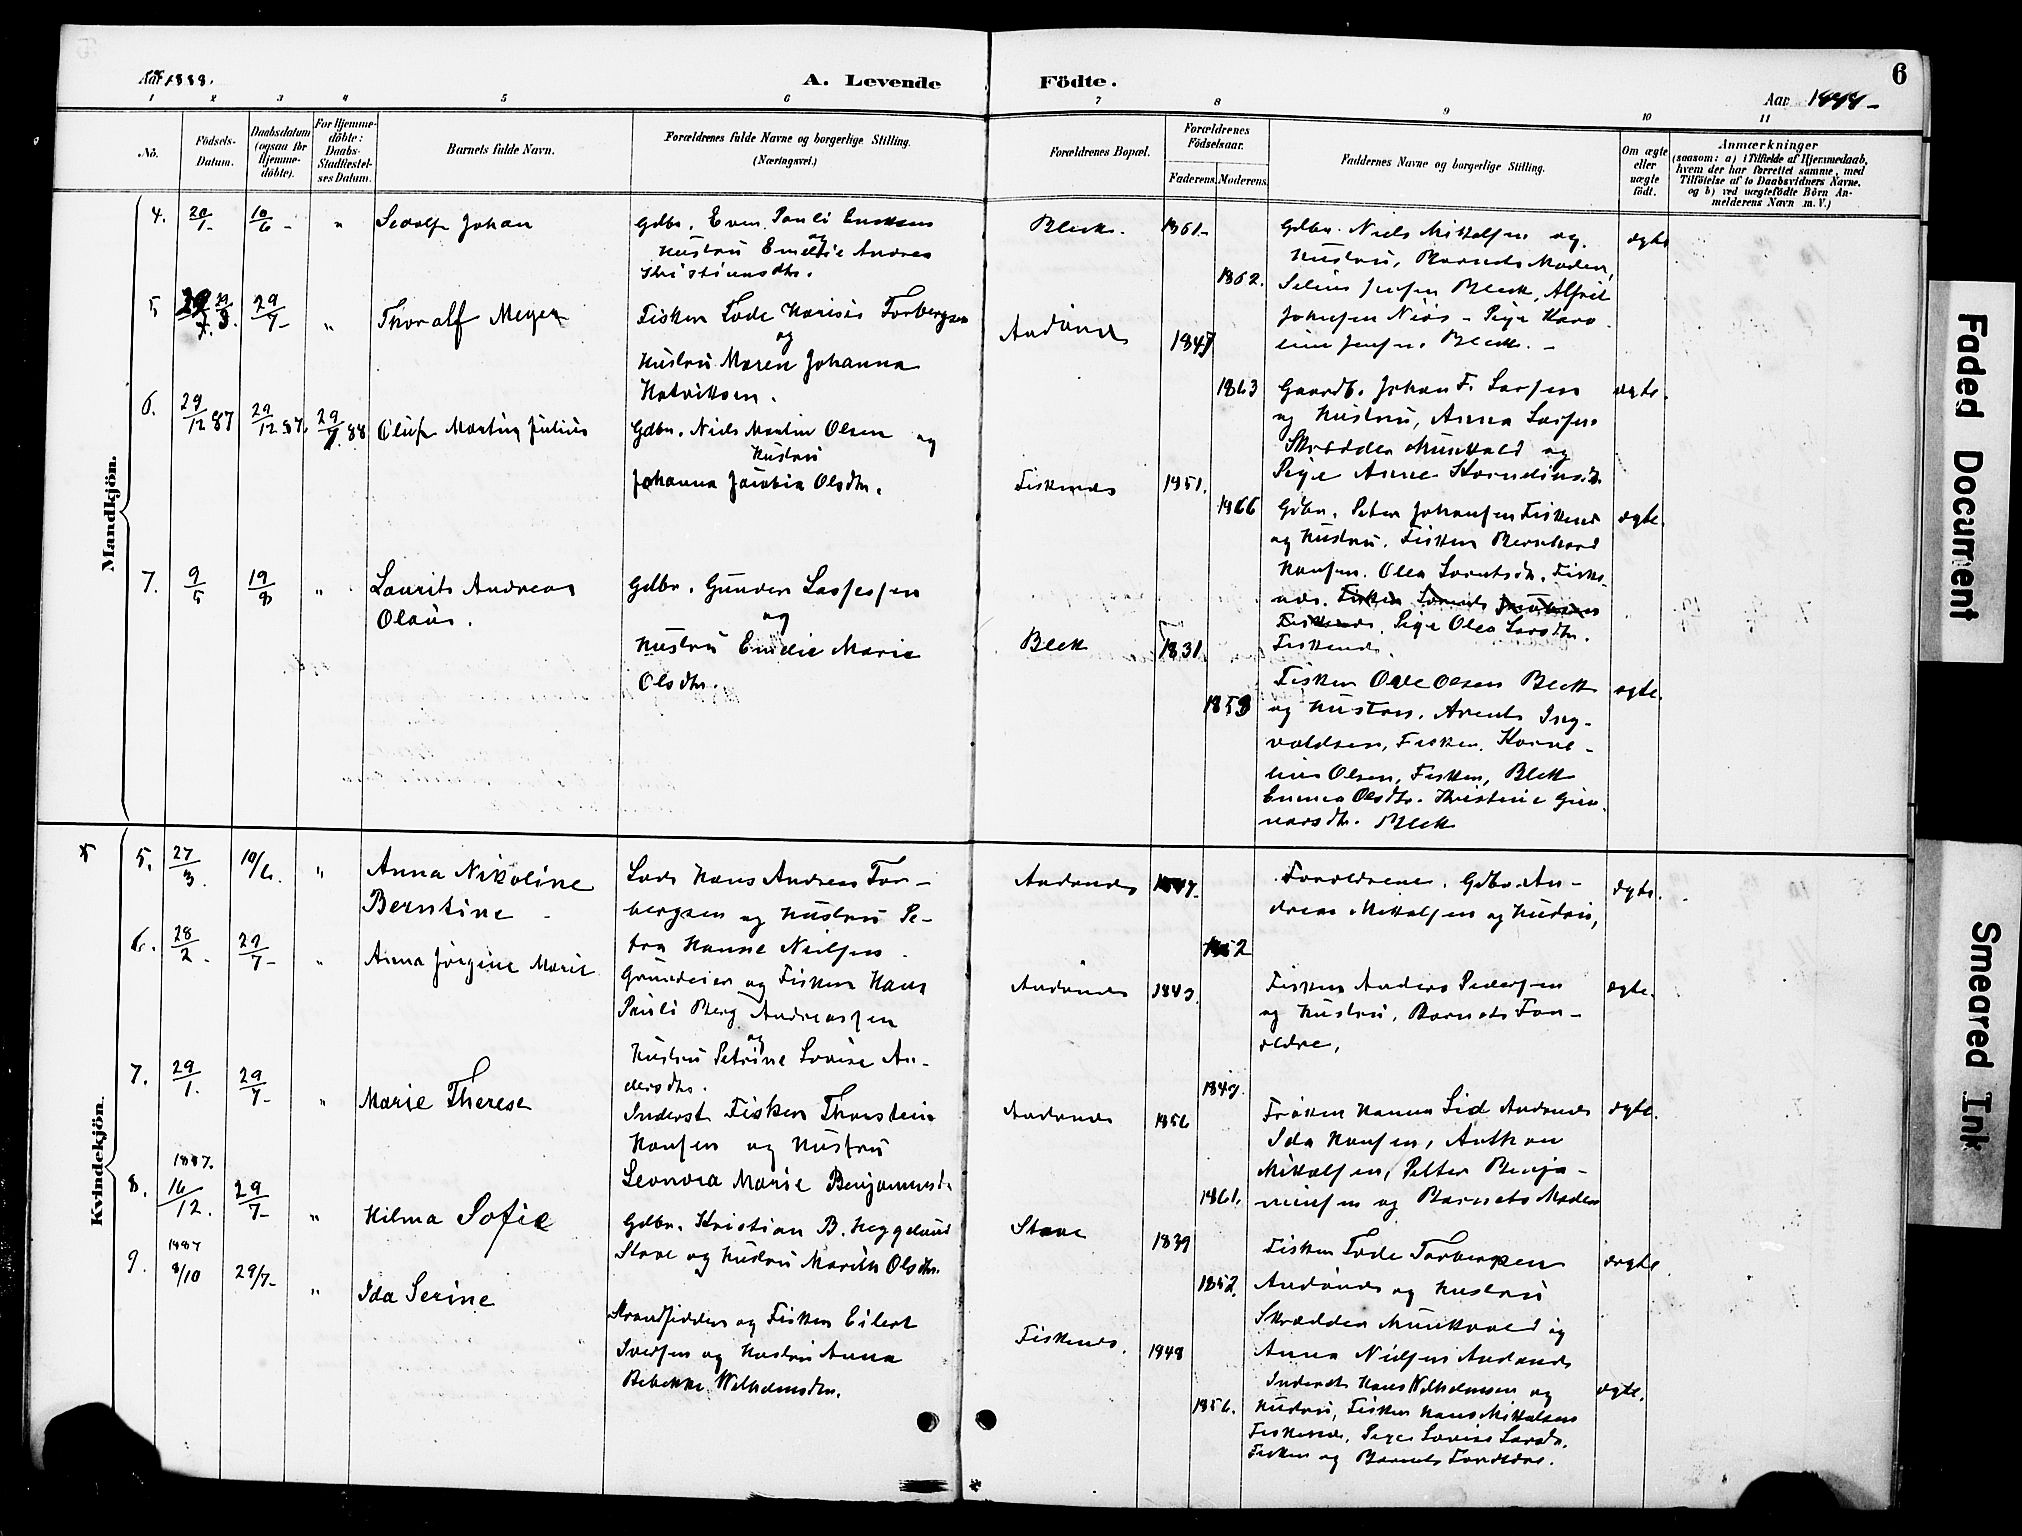 Aar 1888.
A. Levende
Födte.
6
Aar 1888-
1 2 3 4 5 6 7 8 9 10 11
No.
Födsels-
Datum.
Daabsdatum
(ogsaa for
Hjemme-
döbte).
For Hjemme-
döbte:
Daabs-
Stadfæstel-
ses Datum.
Barnets fulde Navn.
Forældrenes fulde Navne og borgerlige Stilling.
(Næringsvei.)
Forældrenes Bopæl.
Forældrenes
Födselsaar.
Faderens.
Moderens.
Faddernes Navne og borgerlige Stilling.
Om ægte
eller
uægte
födt.
Anmærkninger
(saasom: a) i Tilfælde af Hjemmedaab,
hvem der har forrettet samme, med
Tilföielse af to Daabsvidners Navne,
og b) ved uægtefödte Börn An-
melderens Navn m. V.)
Mandkjön.
4. 20/1- 10/6- "
Johan
Gdbr. Even Pauli
og
Hustru Emelie Andrea
Bleik. 1861-
1862.
Gdbr. Niels Mikalsen og
Hustru, Barnets Moder,
Jensen Bleik, Alfred
Johnsen Nøs - Pige Karo-
line Jensen Bleik. -
ægte
5 29/7- "
Thoralf Meyer
Fisker Lode Torbergsen
og
Hustru Maren Johanna
Andønes 1847
1863
Gaardb. Johan F. Larsen
og Hustru, Anna Larsen
Skrædder Munkvold og
Pige Anne
ægte.
6. 29/12 87 29/12 87. 29/7 88
Oluf Martin Julius
Gdbr. Niels Martin Olsen og
Hustru
Johanna Jacobia Olsdtr.
Fiskenes 1851.
1866
Gdbr. Peter Johansen Fiskenes
og Hustru. Fisker Bernhard
Hansen. Olea Fiske-
nes.
Fiskenes. Pige Olea Larsdtr.
Fiskenes.
ægte.
7. 9/5 19/8 "
Laurits Andreas
Olaus.
Gdbr. Gunder Lassesen
og
Hustru Emelie Marie
Olsdtr.
Bleik 1831.
1859
Fisker Ole Olsen Bleik
og Hustru. Arents Ing-
valdsen, Fisker, Korne-
lius Olsen, Fisker, Bleik
Emma Olsdtr. Kristine Gun-
narsdtr. Bleik
ægte.
Kvindekjön.
5. 27/3. 10/6. "
Anna Nikoline
Berntine -
Lods Hans Andreas Tor-
bergsen og Hustru Pe-
tra Hanne Nielsen.
Andønes 1847.
1852
Forældrene. Gdbr. An-
dreas Mikalsen og Hustru,
ægte.
6. 28/2. 29/7- "
Anna Jørgine Marie
Grundeier og Fisker Hans
Pauli Berg Andreassen
og
Hustru Petrine Lovise An-
dersdtr.
Andønes 1843.
1847.
Fisker Anders Pedersen
og Hustru, Barnets For-
ældre.
ægte.
7. 29/1. 29/7- "
Marie Therese
Inderst Fisker Thorstein
Hansen og Hustru
Leonora Marie Benjaminsdtr.
Andønes 1856
1861.
Frøken Hanna Lid Andønes
Ida Hansen, Anthon
Mikalsen, Petter Benja-
minsen og Barnets Moder
ægte.
8. 1887. 16/12. 29/7- "
Hilma Sofie
Gdbr. Kristian B. Heggelund
Stave og Hustru Marith Olsdtr.
Stave 1839
1852.
Fisker Lode Torbergsen
Andønes og Hustru
Skrædder Munkvold og
Anna Nielsen Andønes
ægte.
9. 1887 8/10 29/7- "
Ida Serine
Strandsidder og Fisker Eilert
Iversen og Hustru Anna
Rebekka Wilhelmsdtr.
Fiskenes. 1848
1856.
Inderst Hans Wilhelmsen og
Hustru, Fisker Hans Mikalsen
Fiskenes, Pige Lovise Larsdtr.
Fisker og Barnets Forældre.
ægte.
Faded Document
Smeared Ink